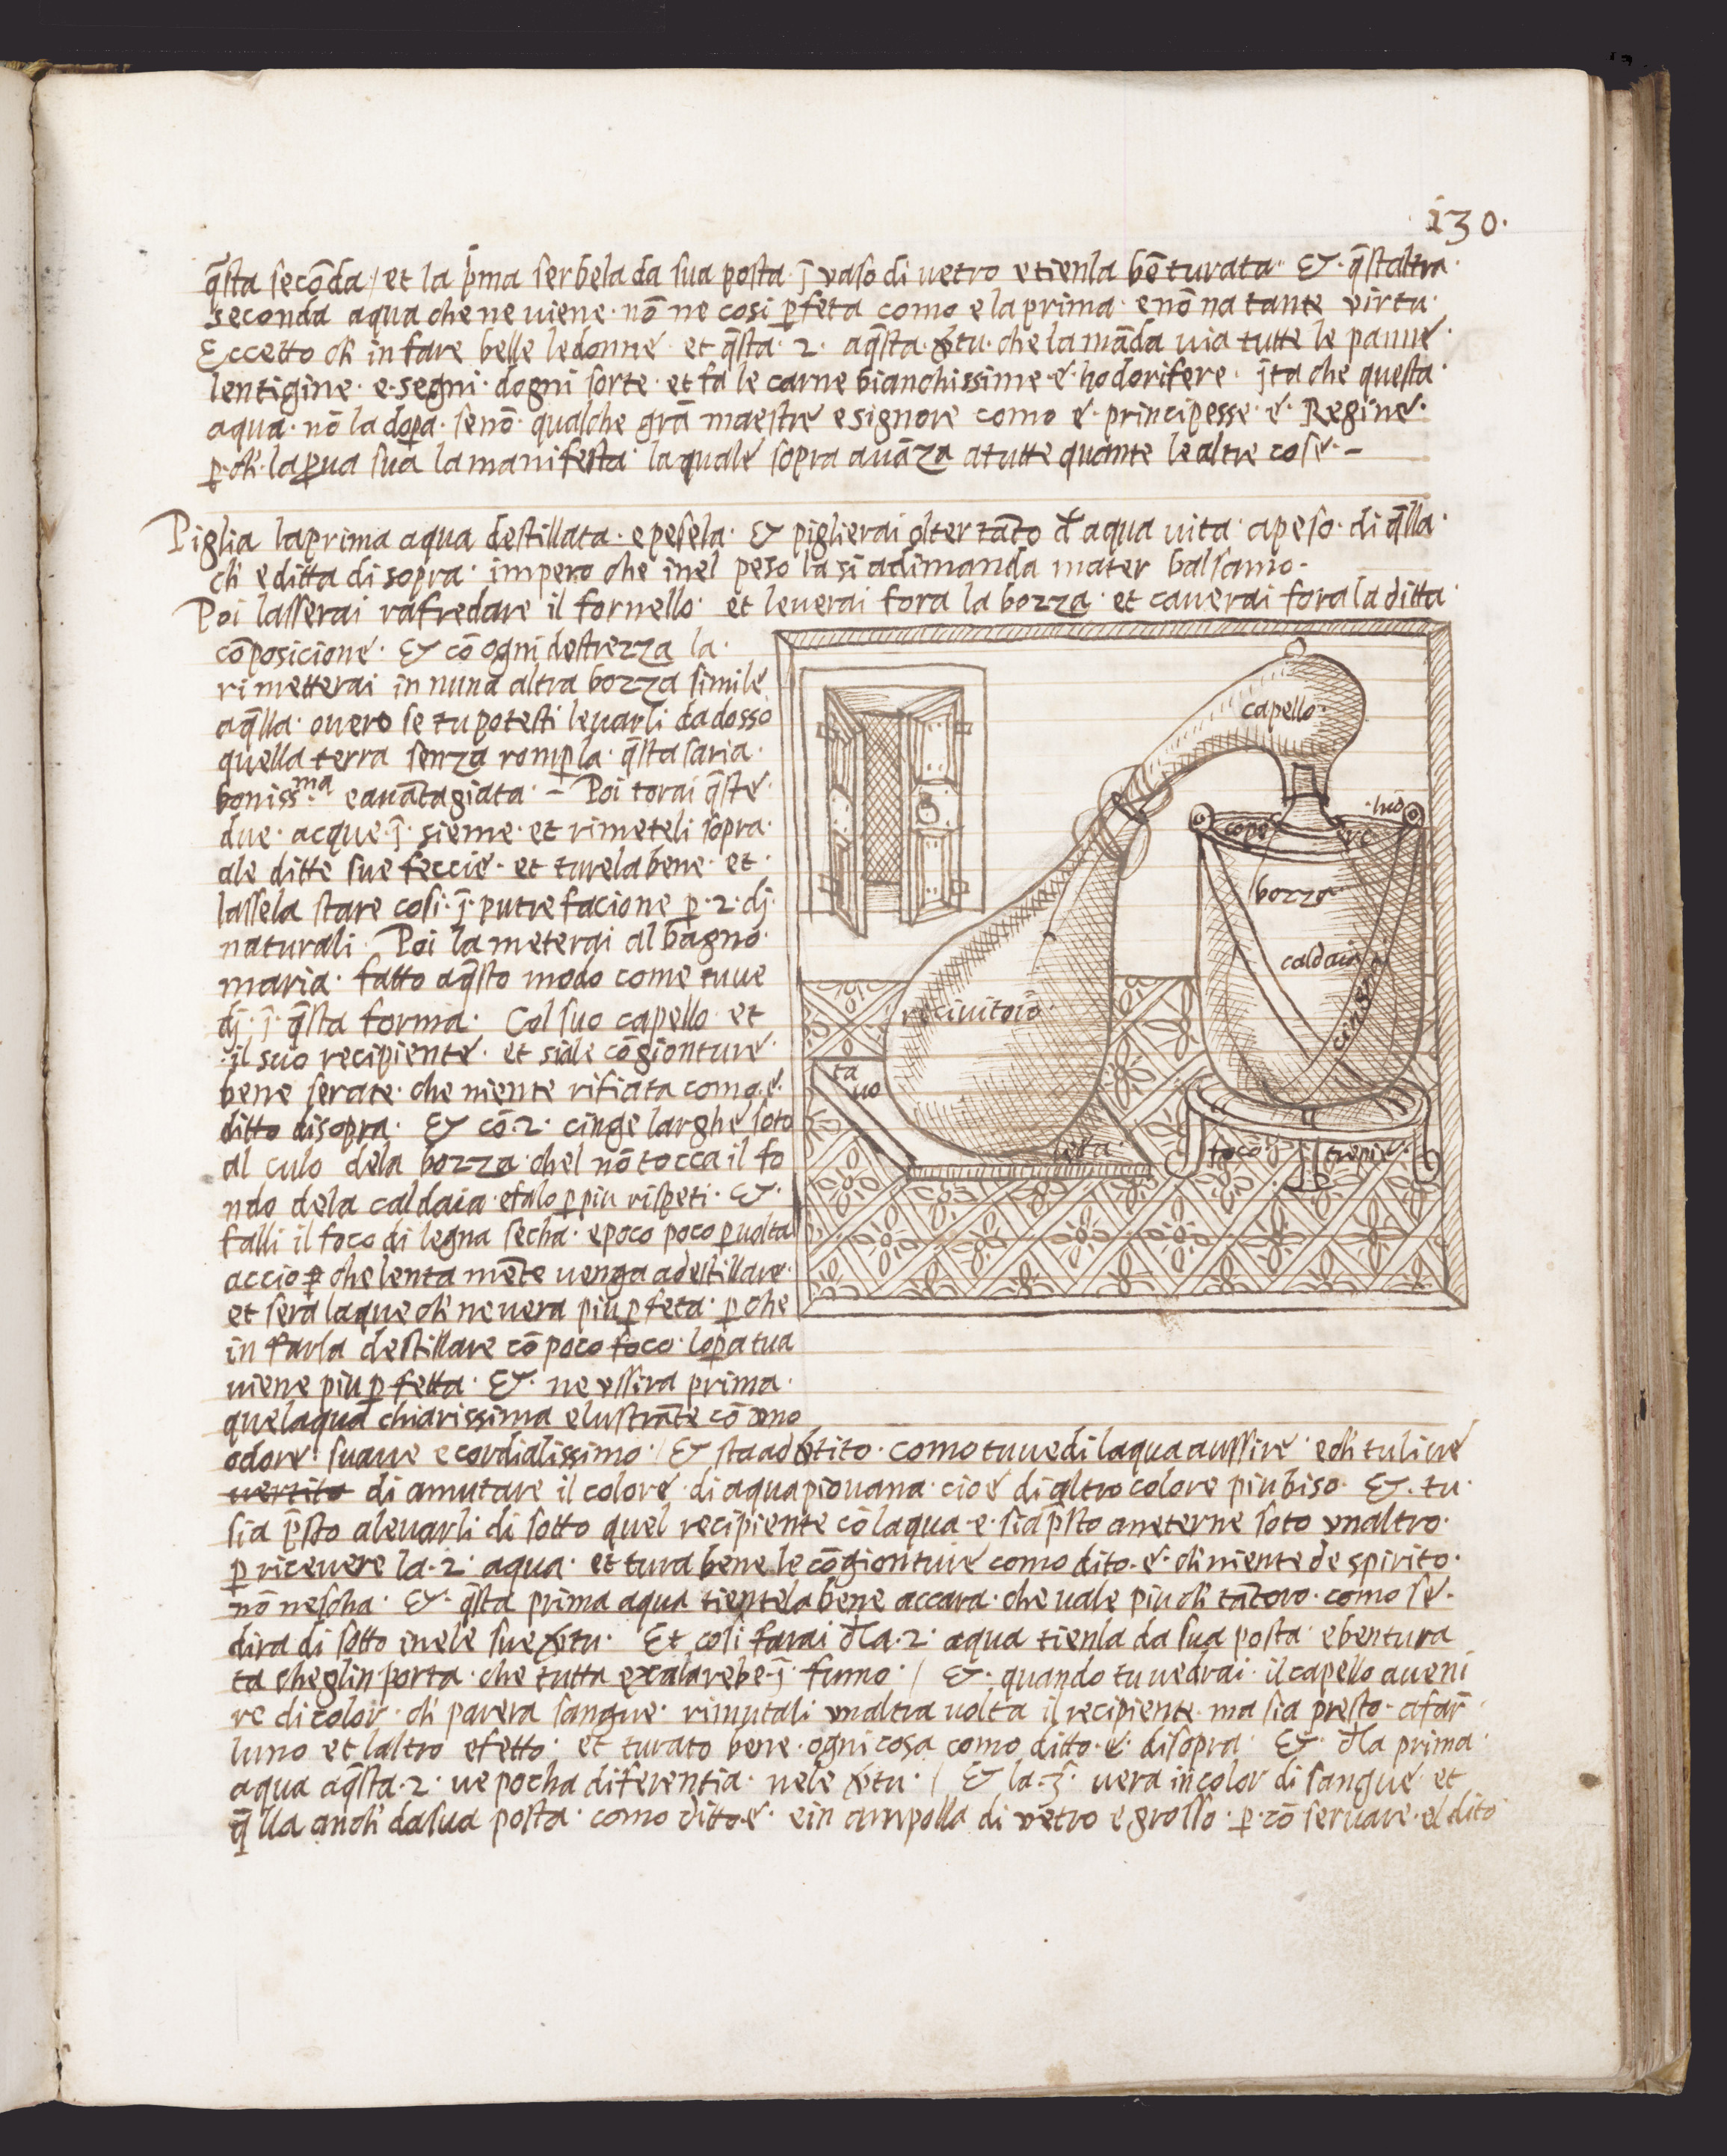 i30.
q̄sta secōda / et la p̄ma serbela da sua posta · j̄ vaso di vetro e tienla bē turata · & · q̄staltra ·
seconda aqua che ne uiene · nō ne cosi ꝑfeta como e la prima · e nō na tante virtu ·
Eccetto ch' in fare belle le donne · et q̄sta · 2 · a q̄sta · v̄tu · che la māda uia tutte le panne ·
lentigine · e · segni · dogni sorte · et fa le carne bianchissime · e · hodorifere · jta che questa ·
aqua · nō la dopa · se nō · qualche grā maestre e signore como e · principesse · e · Regine ·
ꝑ · ch' · la ꝓua sua la manifesta · la quale sopra auāza a tutte quante le altre cose · –
Piglia la prima aqua destillata · e pesela · & piglierai olter tāto d' aqua uita · a peso · di q̄lla ·
ch' e ditta di sopra · impero che inel peso la si adimanda mater balsamo ·
Poi lasserai rafredare il fornello · et leuerai fora la bozza · et cauerai fora la ditta ·
cōposicione · & cō ogni destrezza la ·
rimetterai in nuna altra bozza simile
a q̄lla · ouero se tu potesti leuarli da dosso
quella terra senza romꝑla · q̄sta saria ·
boniss.ma e auātagiata · – Poi torai q̄ste ·
due · acque · j̄ · sieme · et rimeteli sopra ·
ale ditte sue feccie · et turela bene · et ·
lassela stare cosi · j̄ · putrefacione ꝑ · 2 · dj ·
naturali · Poi la meterai al bagno ·
maria · fatto a q̄sto modo come tu ue
dj · j̄ · q̄sta forma · Col suo capello · et
il suo recipiente · et siale cōgionture ·
bene serate · che niente rifiata como · e ·
ditto di sopra · & cō · 2 · cinge larghe soto
al culo dela bozza · chel nō tocca il fo
ndo dela caldaia · e falo ꝑ piu rispeti · & ·
falli il foco di legna secha · e poco poco ꝑ uolta
accio ꝑ che lenta mēte uenga a destillare ·
et sera laque ch' ne uera piu ꝑfeta · ꝑ che
in farla destillare cō poco foco · lopa tua
uiene piu ꝑfetta · & · ne vssira prima ·
quelaqua chiarissima e lustrāte cō vno
odore · suaue e cordialissimo · / & sta ad v̄tito · como tu uedi laqua aussire · e ch' tu li ue
uertito di amutare il colore · di aqua piouana · cioe di altro colore piu biso · & · tu ·
sia p̄sto a leuarli di sotto quel recipiente cō laqua · e · sia p̄sto a meterne soto vnaltro ·
ꝑ riceuere la · 2 · aqua · et tura bene le cōgionture como dito · e · ch' niente de spirito ·
nō nescha · & · q̄sta prima aqua tientela bene accara · che uale piu ch' tātoro · como se ·
dira di sotto inele sue v̄tu · Et cosi farai dla · 2 · aqua tienla da sua posta e ben tura
ta che glin porta · che tutta exalarebe · j̄ · fumo · / & · quando tu uedrai · il capello aueni
re di color · ch' parera sangue · rimutali vnaltra uolta il recipiente · ma sia presto · a far
luno et laltro efetto · et turato bene · ogni cosa como ditto · e · disopra · & · dla prima ·
aqua a q̄sta · 2 · ue pocha diferentia · nele v̄tu · / & la · 3 · uera in color di sangue et
q̄lla anch' da sua posta · como ditto · e · e in ampolla di vetro e grosso · ꝑ · cō seruare · el dito
capello ·
cope
rc
hio
bozza
caldaia
cinge
reciuitoio
ta
uo
letta
foco
trepie